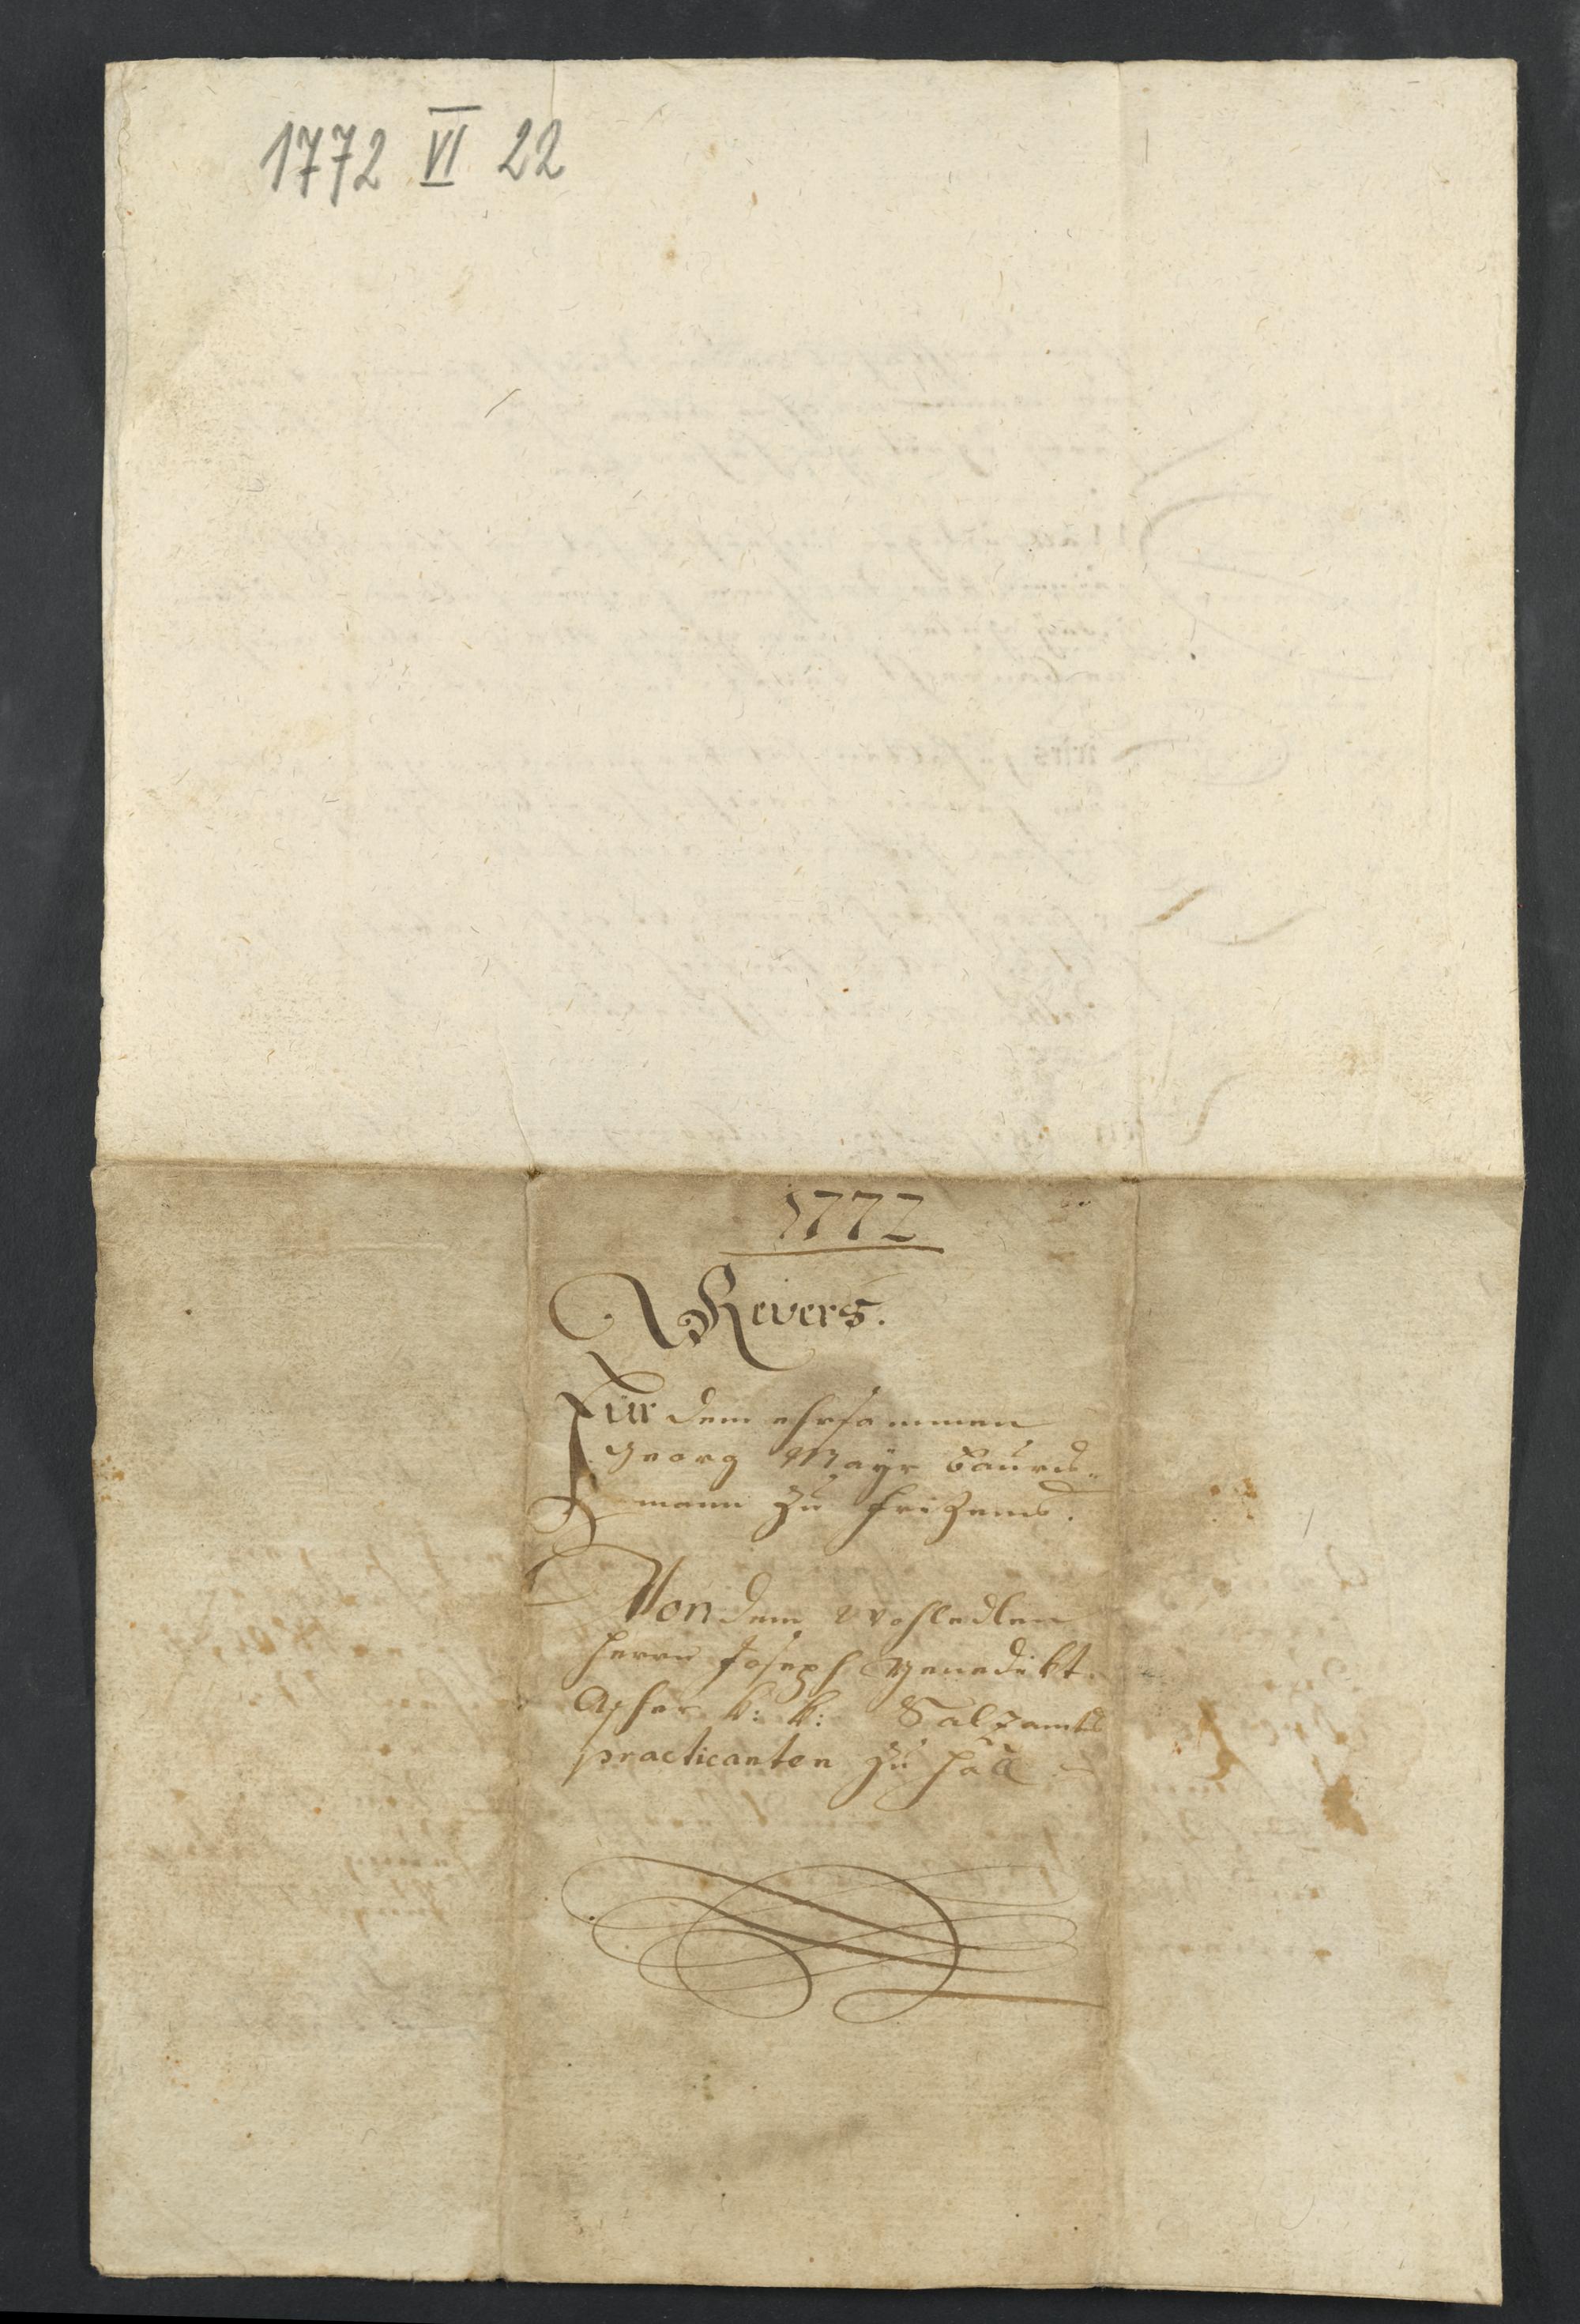 1772 VI 22
1772
Revers.
Für dem ehrsammen
Georg Mayr baurs-
mann zu Frizens.
Von dem wohledlen
Herrn Joseph Benedikt
k: k: Salzamts
practicanten zu Hall